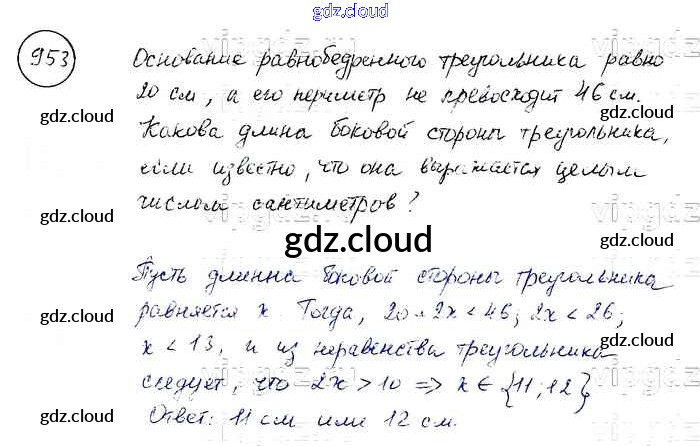 gdz.cloud
953
Основание равнобедренного треугольника равно
20 см, а его периметр не превосходит 46 см.
gdz.cloud
gdz.cloud
Какова длина боковой стороны треугольника,
если известно, что она выражается целым
числом сантиметров?
gdz.cloud
gdz.cloud
gdz.cloud
Пусть длинна боковой стороны треугольника
равняется x. Тогда, 20+2x<46; 2x<26;
gdz.cloud
gdz.cloud
x<13, и из неравенства треугольника
следует, что 2x>10 => x∈{11;12}
Ответ: 11 см или 12 см.
gdz.cloud
gdz.cloud
gdz.cloud